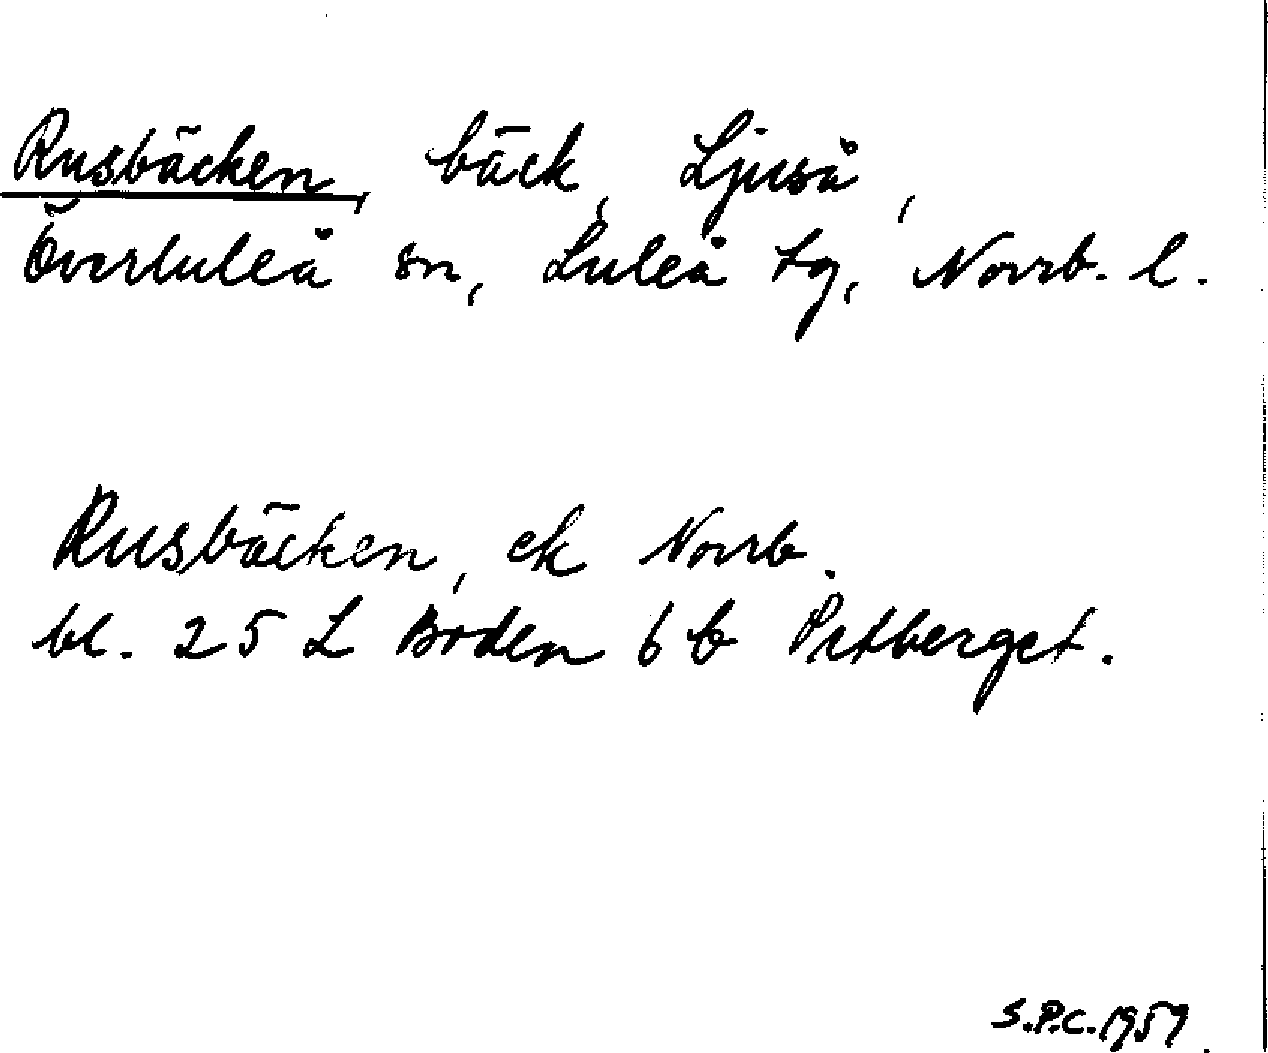 Rusbäcken, bäck, Ljuså,
Överluleå sn, Luleå tg, Norrb. l.
Rusbäcken, ek Norrb.
bl. 25 L Boden 6 b Pitberget.
S.P.C. 1957.